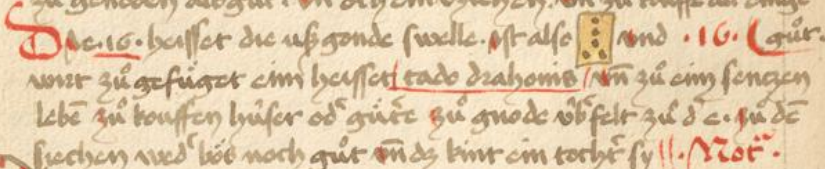 Die .16. heisset die ußgonde swelle. Ist also und .16. guͦt.
wirt zuͦ gefuͤget eim heisset cado drahonis vn̄ zuͦ eim sentzen
lebē zuͦ kouffen huͤser od' guͤt'e zuͦ gnode vb' felt zuͦ d' e. zuͦ dē
siechen wed' boͤs noch guͦt vn̄ dz kint ein tocht' sy Not'.